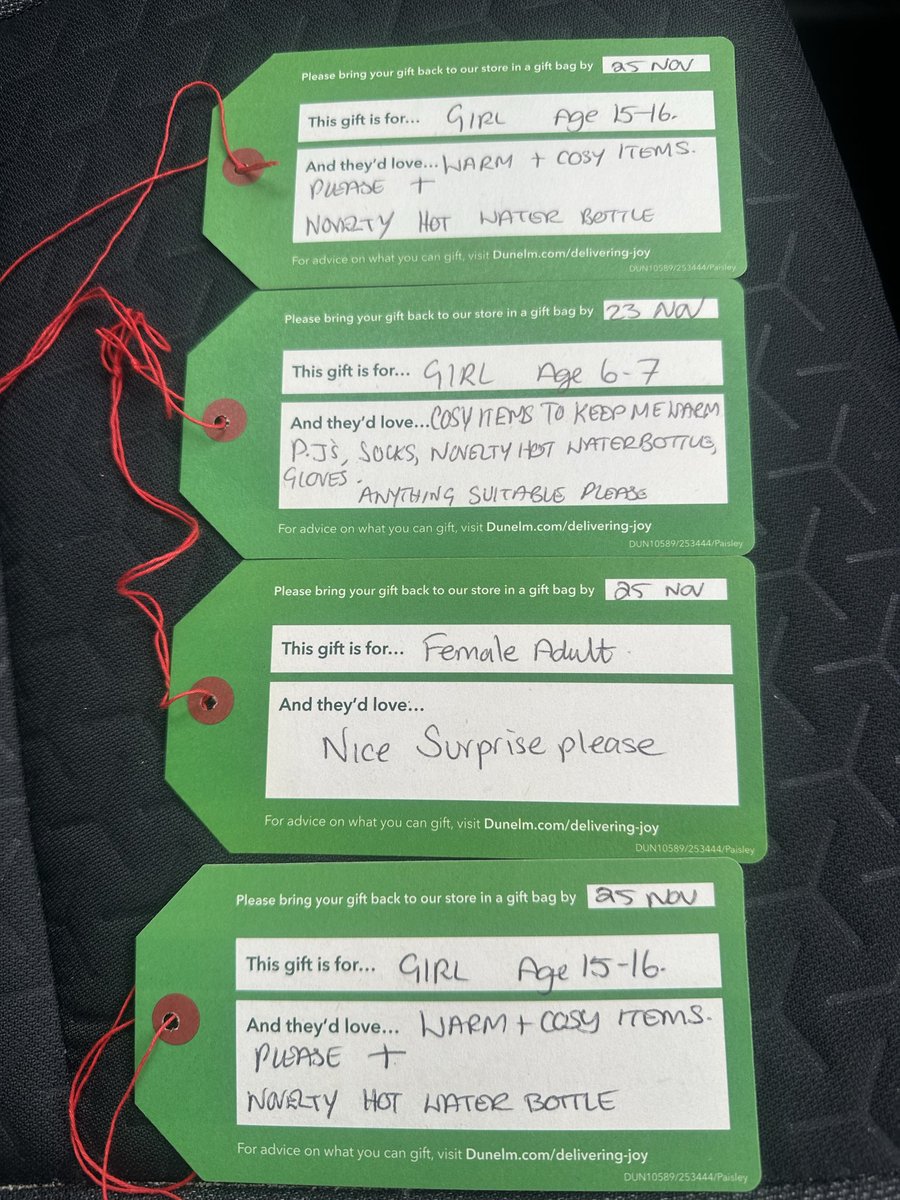 Please bring your gift back to our store in a gift bag by 25 NOV
This gift is for... GIRL Age 15-16.
And they'd love... WARM + COSY ITEMS.
PLEASE +
NOVELTY HOT WATER BOTTLE
For advice on what you can gift, visit Dunelm.com/delivering-joy
DUN10589/253444/Paisley
Please bring your gift back to our store in a gift bag by 23 NOV
This gift is for... GIRL Age 6-7
And they'd love... COSY ITEMS TO KEEP ME WARM
P.J's, SOCKS, NOVELTY HOT WATERBOTTLE,
GLOVES.
ANYTHING SUITABLE PLEASE
For advice on what you can gift, visit Dunelm.com/delivering-joy
DUN10589/253444/Paisley
Please bring your gift back to our store in a gift bag by 25 NOV
This gift is for... Female Adult.
And they'd love...
Nice Surprise please
For advice on what you can gift, visit Dunelm.com/delivering-joy
DUN10589/253444/Paisley
Please bring your gift back to our store in a gift bag by 25 NOV
This gift is for... GIRL Age 15-16.
And they'd love... WARM + COSY ITEMS.
PLEASE +
NOVELTY HOT WATER BOTTLE
For advice on what you can gift, visit Dunelm.com/delivering-joy
DUN10589/253444/Paisley